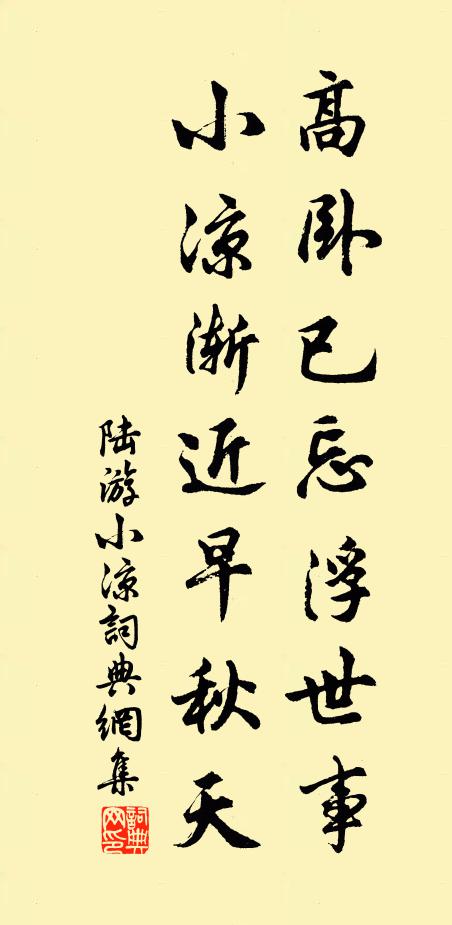 高卧已忘浮世事
小凉渐近早秋天
陆游小凉詞典網集
詞典网印